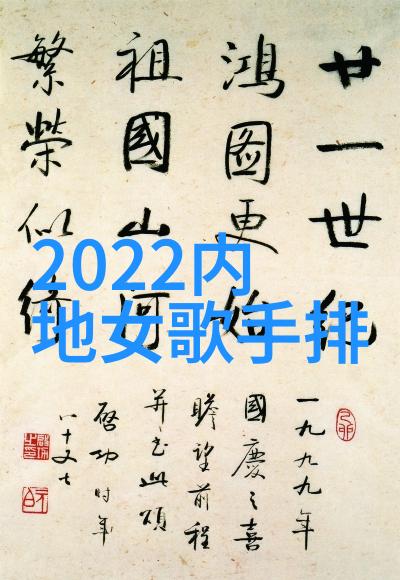 廿一世紀
鴻圖更始
祖國山河
繁榮似
一九九九年
國慶之喜
瞻望前程
并書此頌
啓功時年
八十又七
2022内
地女歌手排